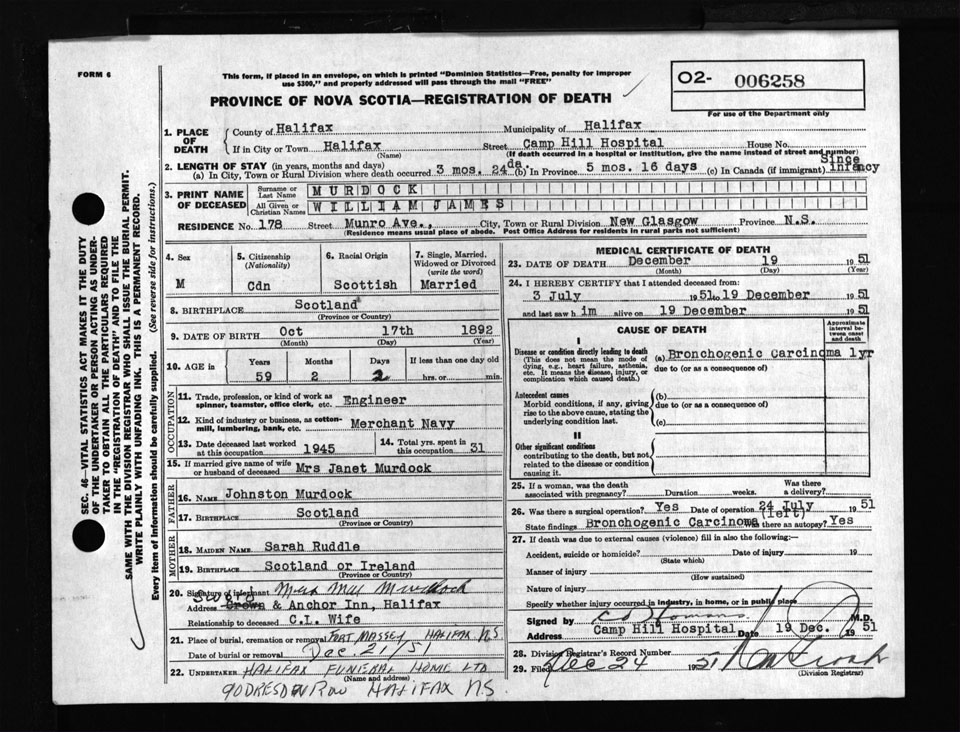 FORM 6
This form, if placed in an envelope, on which is printed "Dominion Statistics—Free, penalty for improper
use $300," and properly addressed will pass through the mail "FREE"
PROVINCE OF NOVA SCOTIA—REGISTRATION OF DEATH
O2- 006258
For use of the Department only
1. PLACE OF DEATH County of Halifax Municipality of Halifax
If in City or Town Halifax (Name) Street Camp Hill Hospital House No.
(If death occurred in a hospital or institution, give the name instead of street and number)
2. LENGTH OF STAY (in years, months and days)
(a) In City, Town or Rural Division where death occurred 3 mos. 24 da. (b) In Province 5 mos. 16 days (c) In Canada (if immigrant) Since infancy
3. PRINT NAME OF DECEASED Surname or Last Name MURDOCK
All Given or Christian Names WILLIAM JAMES
RESIDENCE No. 178 Street Munro Ave., City, Town or Rural Division New Glasgow Province N.S.
(Residence means usual place of abode. Post Office Address for residents in rural parts not sufficient)
4. Sex 5. Citizenship (Nationality) 6. Racial Origin 7. Single, Married, Widowed or Divorced (write the word)
M Cdn Scottish Married
8. BIRTHPLACE Scotland
(Province or Country)
9. DATE OF BIRTH Oct 17th 1892
(Month) (Day) (Year)
10. AGE in Years Months Days If less than one day old
59 2 2 hrs. or min.
OCCUPATION
11. Trade, profession, or kind of work as spinner, teamster, office clerk, etc. Engineer
12. Kind of industry or business, as cotton-mill, lumbering, bank, etc. Merchant Navy
13. Date deceased last worked at this occupation 1945 14. Total yrs. spent in this occupation 31
15. If married give name of wife or husband of deceased Mrs Janet Murdock
FATHER
16. NAME Johnston Murdock
17. BIRTHPLACE Scotland
(Province or Country)
MOTHER
18. MAIDEN NAME Sarah Ruddle
19. BIRTHPLACE Scotland or Ireland
(Province or Country)
20. Signature of informant Murdock
Address Sword Crown & Anchor Inn, Halifax
Relationship to deceased C.L. Wife
21. Place of burial, cremation or removal FORT MASSEY HALIFAX NS
Date of burial or removal Dec. 21/51
22. UNDERTAKER HALIFAX FUNERAL HOME LTD
(Name and address)
90 DRESDEN ROW HALIFAX N.S.
MEDICAL CERTIFICATE OF DEATH
23. DATE OF DEATH December 19 1951
(Month) (Day) (Year)
24. I HEREBY CERTIFY that I attended deceased from:
3 July 1951 to 19 December 1951
and last saw him alive on 19 December 1951
CAUSE OF DEATH
Approximate interval between onset and death
I
Disease or condition directly leading to death (a) Bronchogenic Carcinoma 1yr
(This does not mean the mode of dying, e.g., heart failure, asthenia, etc. It means the disease, injury, or complication which caused death.) due to (or as a consequence of)
Antecedent causes (b)
Morbid conditions, if any, giving rise to the above cause, stating the underlying condition last. due to (or as a consequence of)
(c)
II
Other significant conditions
contributing to the death, but not related to the disease or condition causing it.
25. If a woman, was the death associated with pregnancy? Duration weeks. Was there a delivery?
26. Was there a surgical operation? Yes Date of operation 24 July 1951
(left)
State findings Bronchogenic Carcinoma Was there an autopsy? Yes
27. If death was due to external causes (violence) fill in also the following:
Accident, suicide or homicide? Date of injury 19
(State which)
Manner of injury
(How sustained)
Nature of injury
Specify whether injury occurred in industry, in home, or in public place
Signed by M.D.
Address Camp Hill Hospital Date 19 Dec. 1951
28. Division Registrar's Record Number
29. Filed Dec 24 1951
(Division Registrar)
SEC. 46—VITAL STATISTICS ACT MAKES IT THE DUTY
OF THE UNDERTAKER OR PERSON ACTING AS UNDER-
TAKER TO OBTAIN ALL THE PARTICULARS REQUIRED
IN THE "REGISTRATION OF DEATH" AND TO FILE THE
SAME WITH THE DIVISION REGISTRAR WHO SHALL ISSUE THE BURIAL PERMIT.
WRITE PLAINLY WITH UNFADING INK. THIS IS A PERMANENT RECORD.
Every item of information should be carefully supplied. (See reverse side for instructions.)